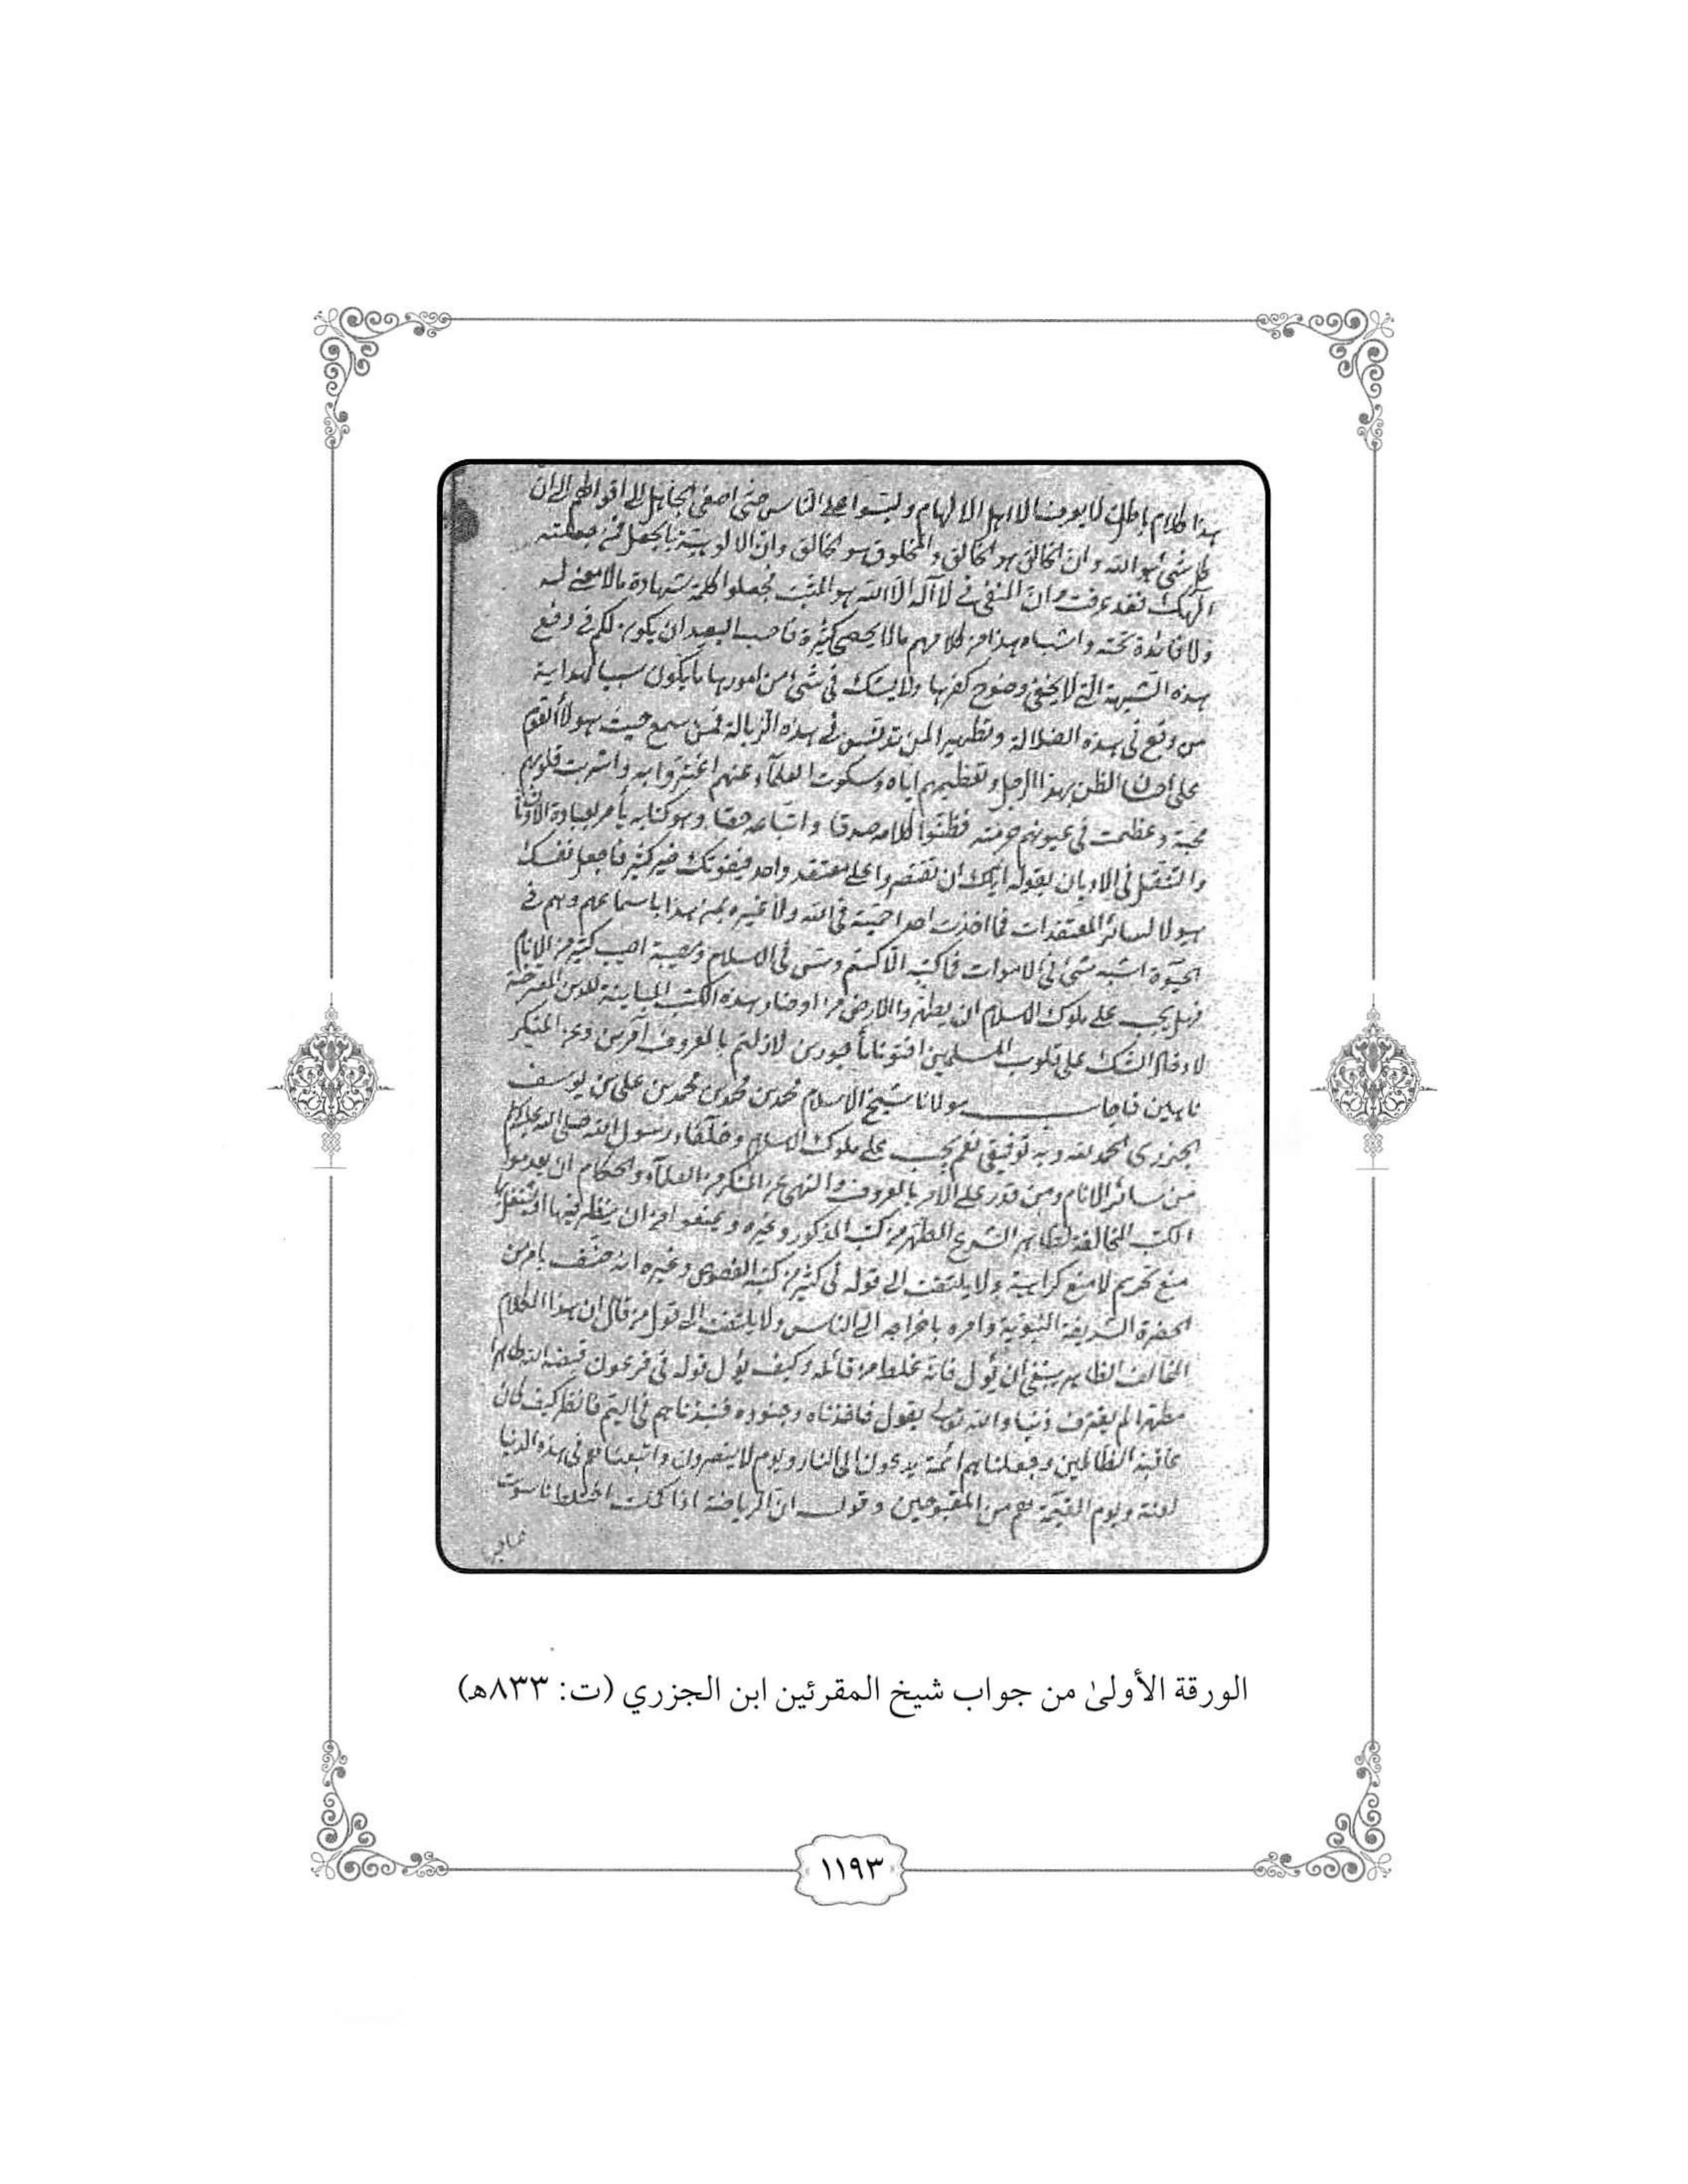 هذا كلام باطن لا يعرفه الا اهل الالهام ولبسوا على الناس حتى اصغى الجاهل الى اقوالهم الى ان
كل شئ هو الله وان الخالق هو المخلوق والمخلوق هو الخالق وان الالوهية بالجعل فمن جعلته
الهك فقد عرفته وان المنفى في لا آله الا الله هو المثبت فجعلوا كلمة شهادة ما لا معنى له
ولا فائدة تحته واشباه هذا من كلامهم ما لا يحصى كثرة البعيد ان يكون لكم في دفع
هذه الشبهة التي لا يخفى وضوح كفرها ولا يشك في شئ من امورها ما يكون سببا لهداية
من وقع في هذه الضلالة وتطهيرا لمن تدنس في هذه الزبالة فمن سمع حيث هولاء القوم
على احسان الظن بهذا الرجل وتعظيمهم اياه وسكوت العلمآء عنهم اغتروا به واشربت قلوبهم
محبة وعظمت في عيونهم حرمته فظنوا كلامه صدقا واتباعه حقا وهو كتابه يأمر بعبادة الأوثان
والتنقل في الاديان بقوله اياك ان تقتصروا على معتقد واحد فيفوتك خير كثير فاجعل نفسك
هيولا لسائر المعتقدات فما اخذت احدا حمية في الله ولا غيرة بهذا باسماعهم وهم في
الحيوة اشبه شئ في الاموات في الاسلام وبمصيبة اصيب كثير من الانام
فهل يجب على ملوك الاسلام ان يطهروا الارض من اوضار هذه الكتب المباينة للدين المعرضة
لادخال الشك على قلوب المسلمين افتونا مأجورين لازلتم بالمعروف آمرين وعن المنكر
ناهين فاجاب مولانا شيخ الاسلام محمد بن محمد بن محمد بن على بن يوسف
الجزرى الحمد لله وبه توفيقي نعم يجب على ملوك الاسلام وخلفاء رسول الله صلى الله عليه وسلم
من سائر الانام ومن قدر على الامر بالمعروف والنهى عن المنكر من العلمآء والحكام ان يعدموا
الكتب المخالفة لظاهر الشرع المطهر من كتب المذكور وغيره ويمنعوا من ان ينظر فيها او يشتغل بها
منع تحريم لا منع كراهية ولا يلتفت الى قوله في كثير من كتبه الفصوص وغيره انه صنف بامر من
الحضرة الشريفة النبوية وامره باخراجه الى الناس ولا يلتفت الى قول من قال ان هذا الكلام
المخالف الظاهر ينبغي ان يؤول فانه غلط من قائله وكيف يؤل قوله في فرعون قبضه الله طاهرا
مطهرا لم يقترف ذنبا والله تعالى يقول فاخذناه وجنوده فنبذناهم في اليم فانظر كيف كان
عاقبة الظالمين وجعلناهم ائمة يدعون الى النار ويوم لا ينصرون واتبعناهم في هذه الدنيا
لعنة ويوم القيمة هم من المقبوحين وقوله ان الرياضة اذا كملت اختلط ناسوت
الورقة الأولىٰ من جواب شيخ المقرئين ابن الجزري (ت: ٨٣٣هـ)
١١٩٣